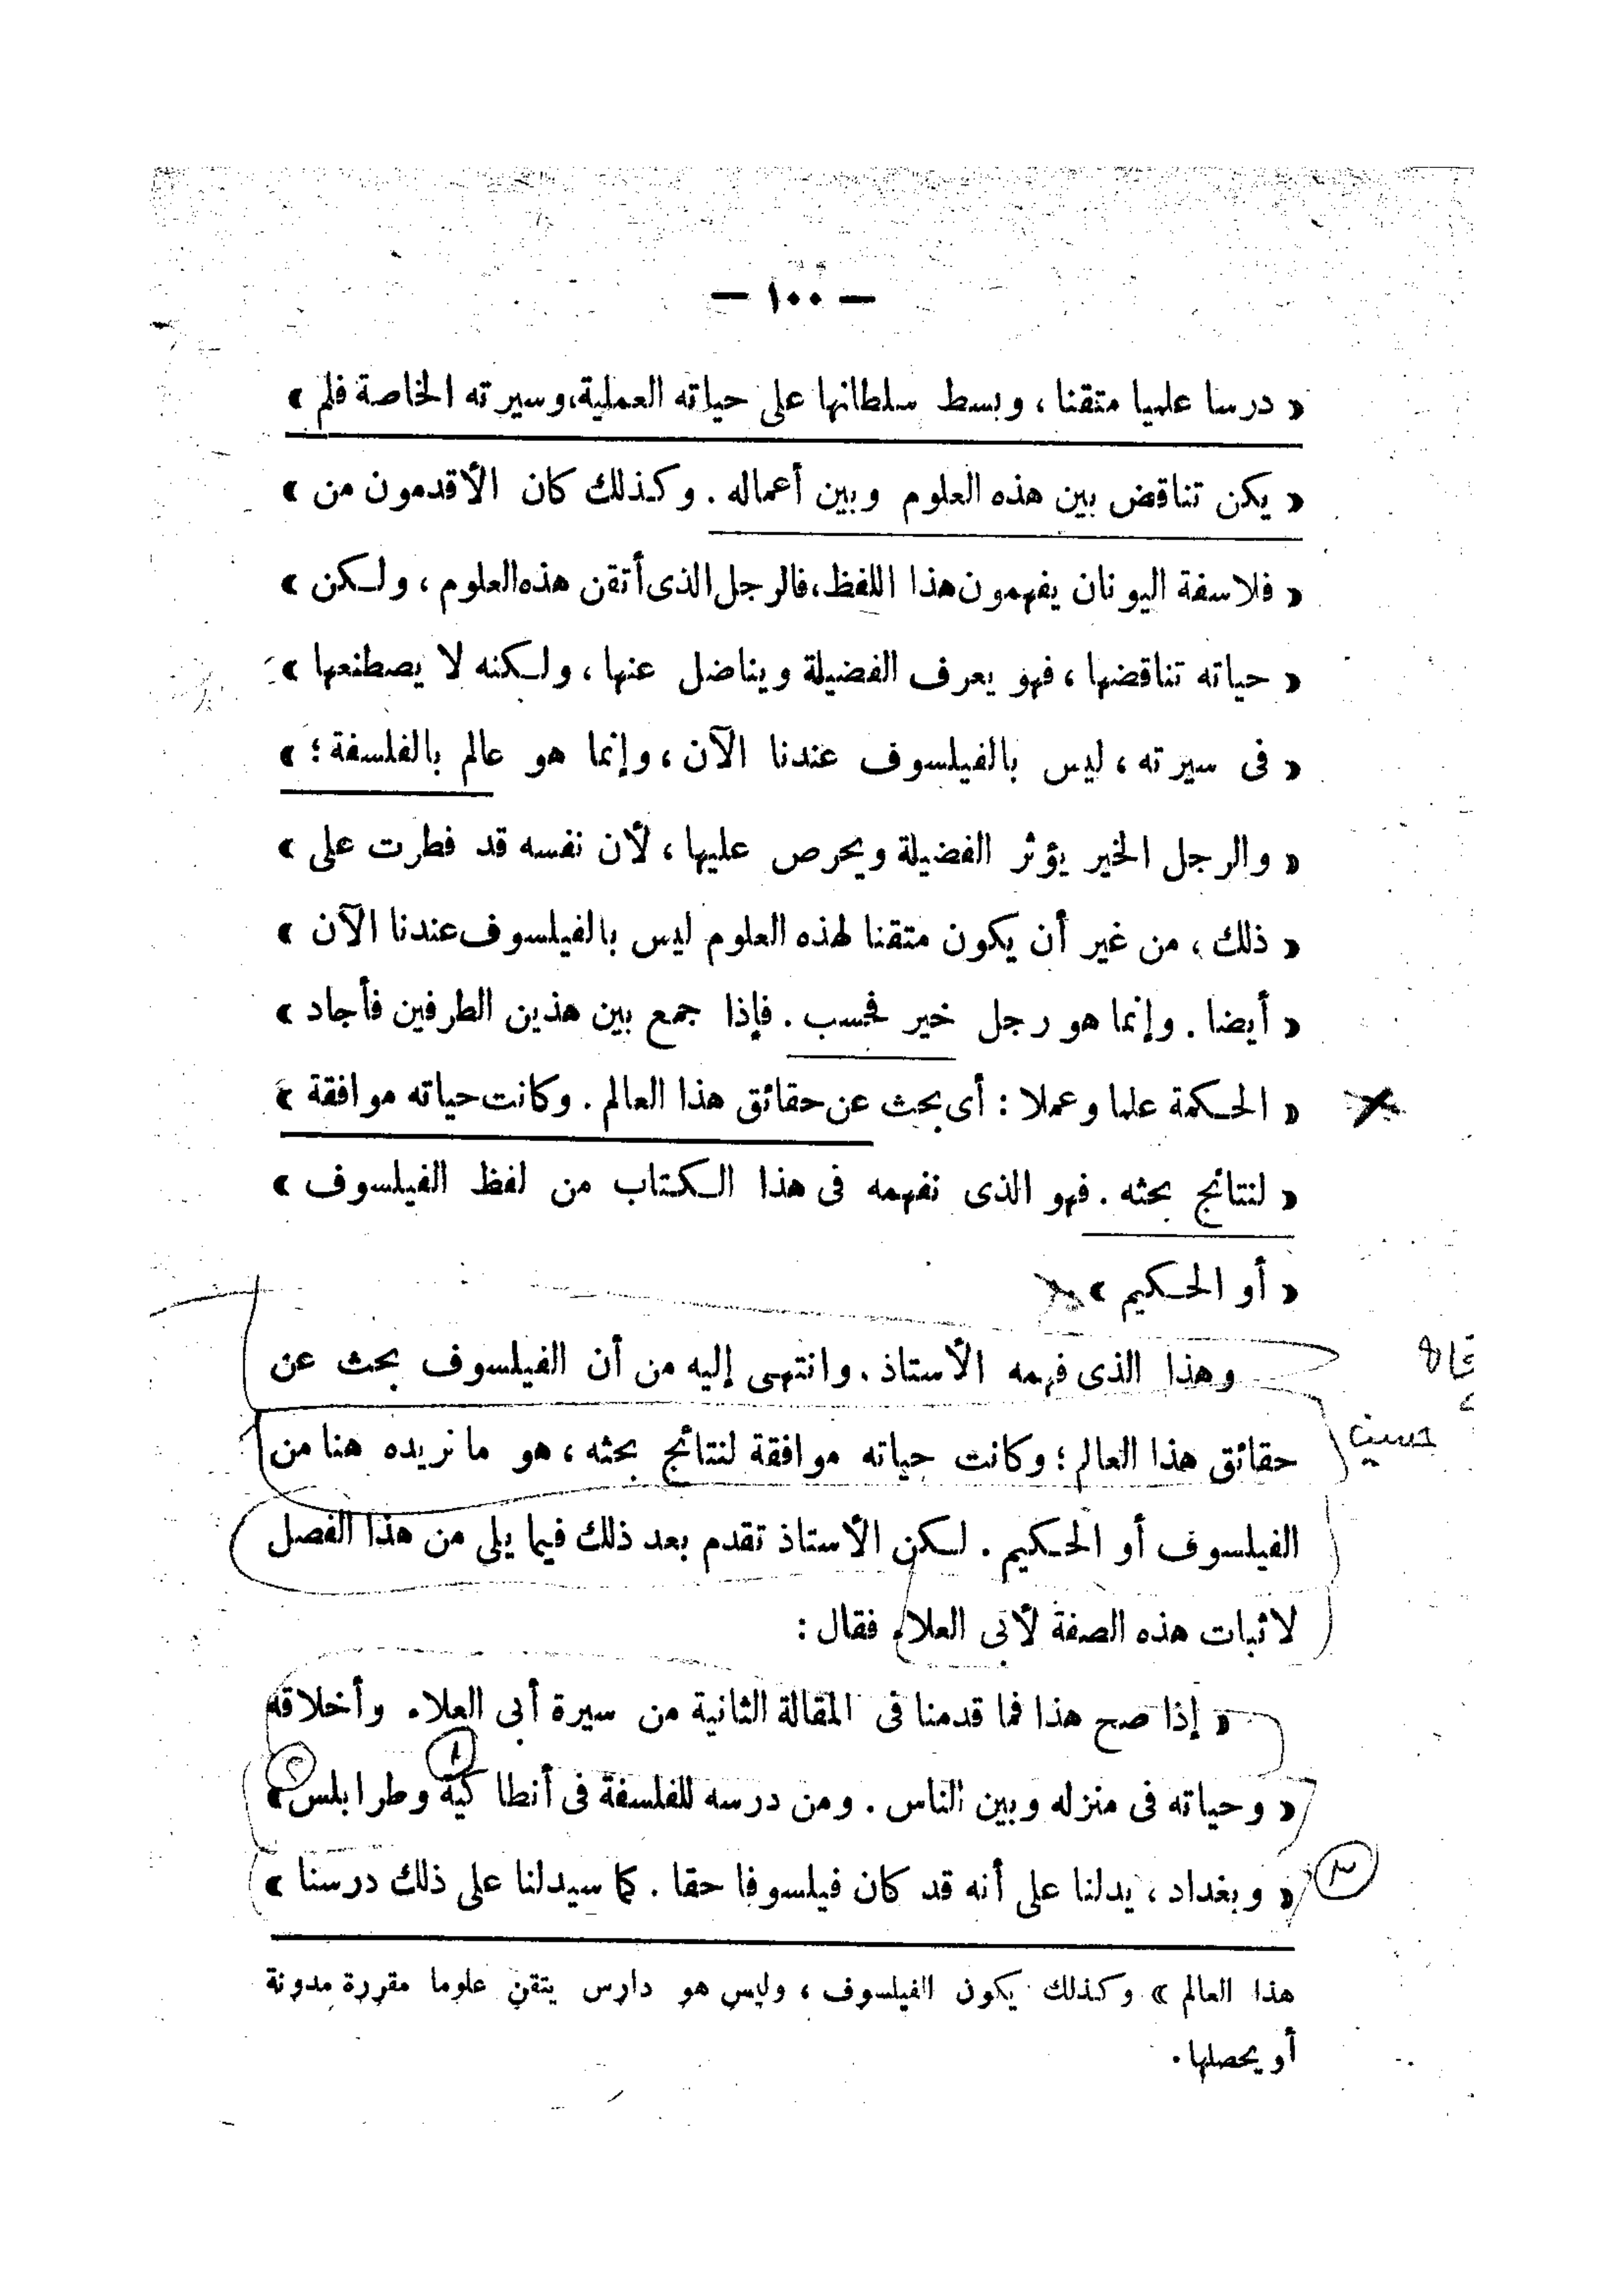 — ١٠٠ —
« درسا علميا متقنا ، وبسط سلطانها على حياته العملية،وسيرته الخاصة فلم »
« يكن تناقض بين هذه العلوم وبين أعماله . وكذلك كان الأقدمون من »
« فلاسفة اليونان يفهمون هذا اللفظ،فالرجل الذى أتقن هذه العلوم ، ولكن »
« حياته تناقضها ، فهو يعرف الفضيلة ويناضل عنها ، ولكنه لا يصطنعها »
« فى سيرته ، ليس بالفيلسوف عندنا الآن ، وإنما هو عالم بالفلسفة ؛ »
« والرجل الخير يؤثر الفضيلة ويحرص عليها ، لأن نفسه قد فطرت على »
« ذلك ، من غير أن يكون متقنا لهذه العلوم ليس بالفيلسوف عندنا الآن »
« أيضا . وإنما هو رجل خير فحسب . فإذا جمع بين هذين الطرفين فأجاد »
« الحكمة علما وعملا : أى بحث عن حقائق هذا العالم . وكانت حياته موافقة »
« لنتائج بحثه . فهو الذى نفهمه فى هذا الكتاب من لفظ الفيلسوف »
« أو الحكيم »
وهذا الذى فهمه الأستاذ . وانتهى إليه من أن الفيلسوف بحث عن
حقائق هذا العالم ؛ وكانت حياته موافقة لنتائج بحثه ، هو ما نريده هنا من
حسين
الفيلسوف أو الحكيم . لكن الأستاذ تقدم بعد ذلك فيما يلى من هذا الفصل
لاثبات هذه الصفة لأبى العلاء فقال :
« إذا صح هذا فما قدمنا فى المقالة الثانية من سيرة أبى العلاء وأخلاقه
« وحياته فى منزله وبين الناس . ومن درسه للفلسفة فى أنطاكية وطرابلس »
« وبغداد ، يدلنا على أنه قد كان فيلسوفا حقا . كما سيدلنا على ذلك درسنا »
هذا العالم » وكذلك يكون الفيلسوف ، وليس هو دارس يتقن علوما مقررة مدونة
أو يحصلها .